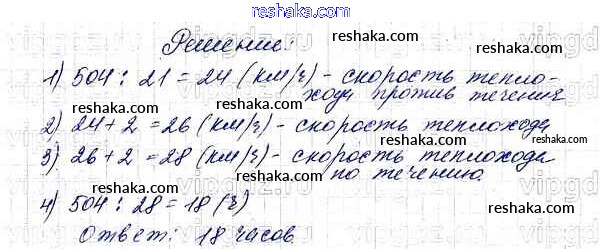 reshaka.com
Решение:
1) 504 : 21 = 24 (км/ч) - скорость тепло-
хода против течения
2) 24 + 2 = 26 (км/ч) - скорость теплохода
3) 26 + 2 = 28 (км/ч) - скорость теплохода
по течению.
4) 504 : 28 = 18 (ч)
Ответ: 18 часов
reshaka.com
reshaka.com
reshaka.com
reshaka.com
reshaka.com
reshaka.com
reshaka.com
reshaka.com
reshaka.com